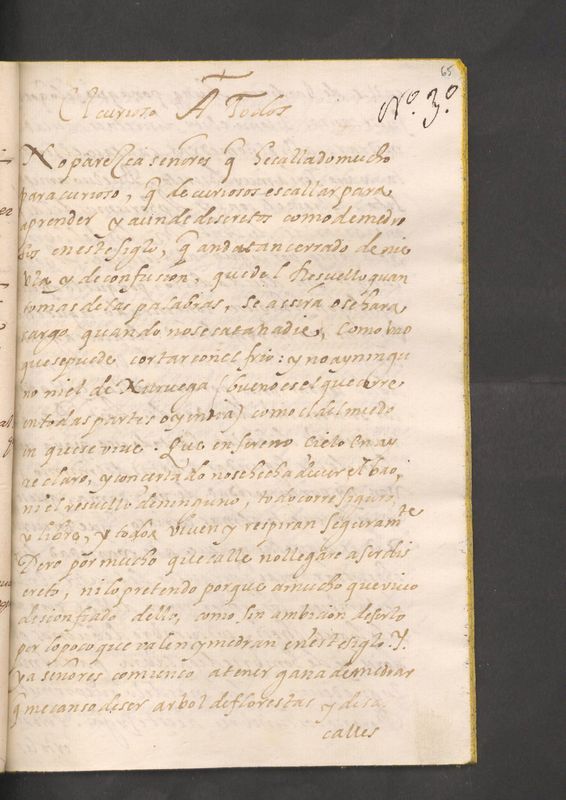 65
El curioso A Todos
Nº. 3º.
No parezca señores q̃ he callado mucho
para curioso, q̃ de curiosos es callar para
aprender y aun de discretos como de medro
sos en este siglo, q̃ anda tan cerrado de nie
bla y de confusion, que del Resuello quan
to mas de las palabras, se assira o se hara
cargo quando no se cata nadie, como vao
que se puede cortar con el frio: y no ay ningu
no ni el de Nuruega (bueno es el que corre
en todas partes oy en dia) como el del miedo
en que se vive. Que en sereno cielo en ay
re claro, y concertado no se hecha de ver el bao,
ni el resuello de ninguno, todo corre siguro
y libre, y todos viven y respiran seguramte
Pero por mucho que calle no llegare a ser dis
creto, ni lo pretendo porque a mucho que vivo
desconfiado dello, como sin ambicion de serlo
por lo poco que valen y medran en este siglo. Y
ya señores comienço a tener gana de medrar
q̃ me canso de ser arbol de florestas y de sa
calles